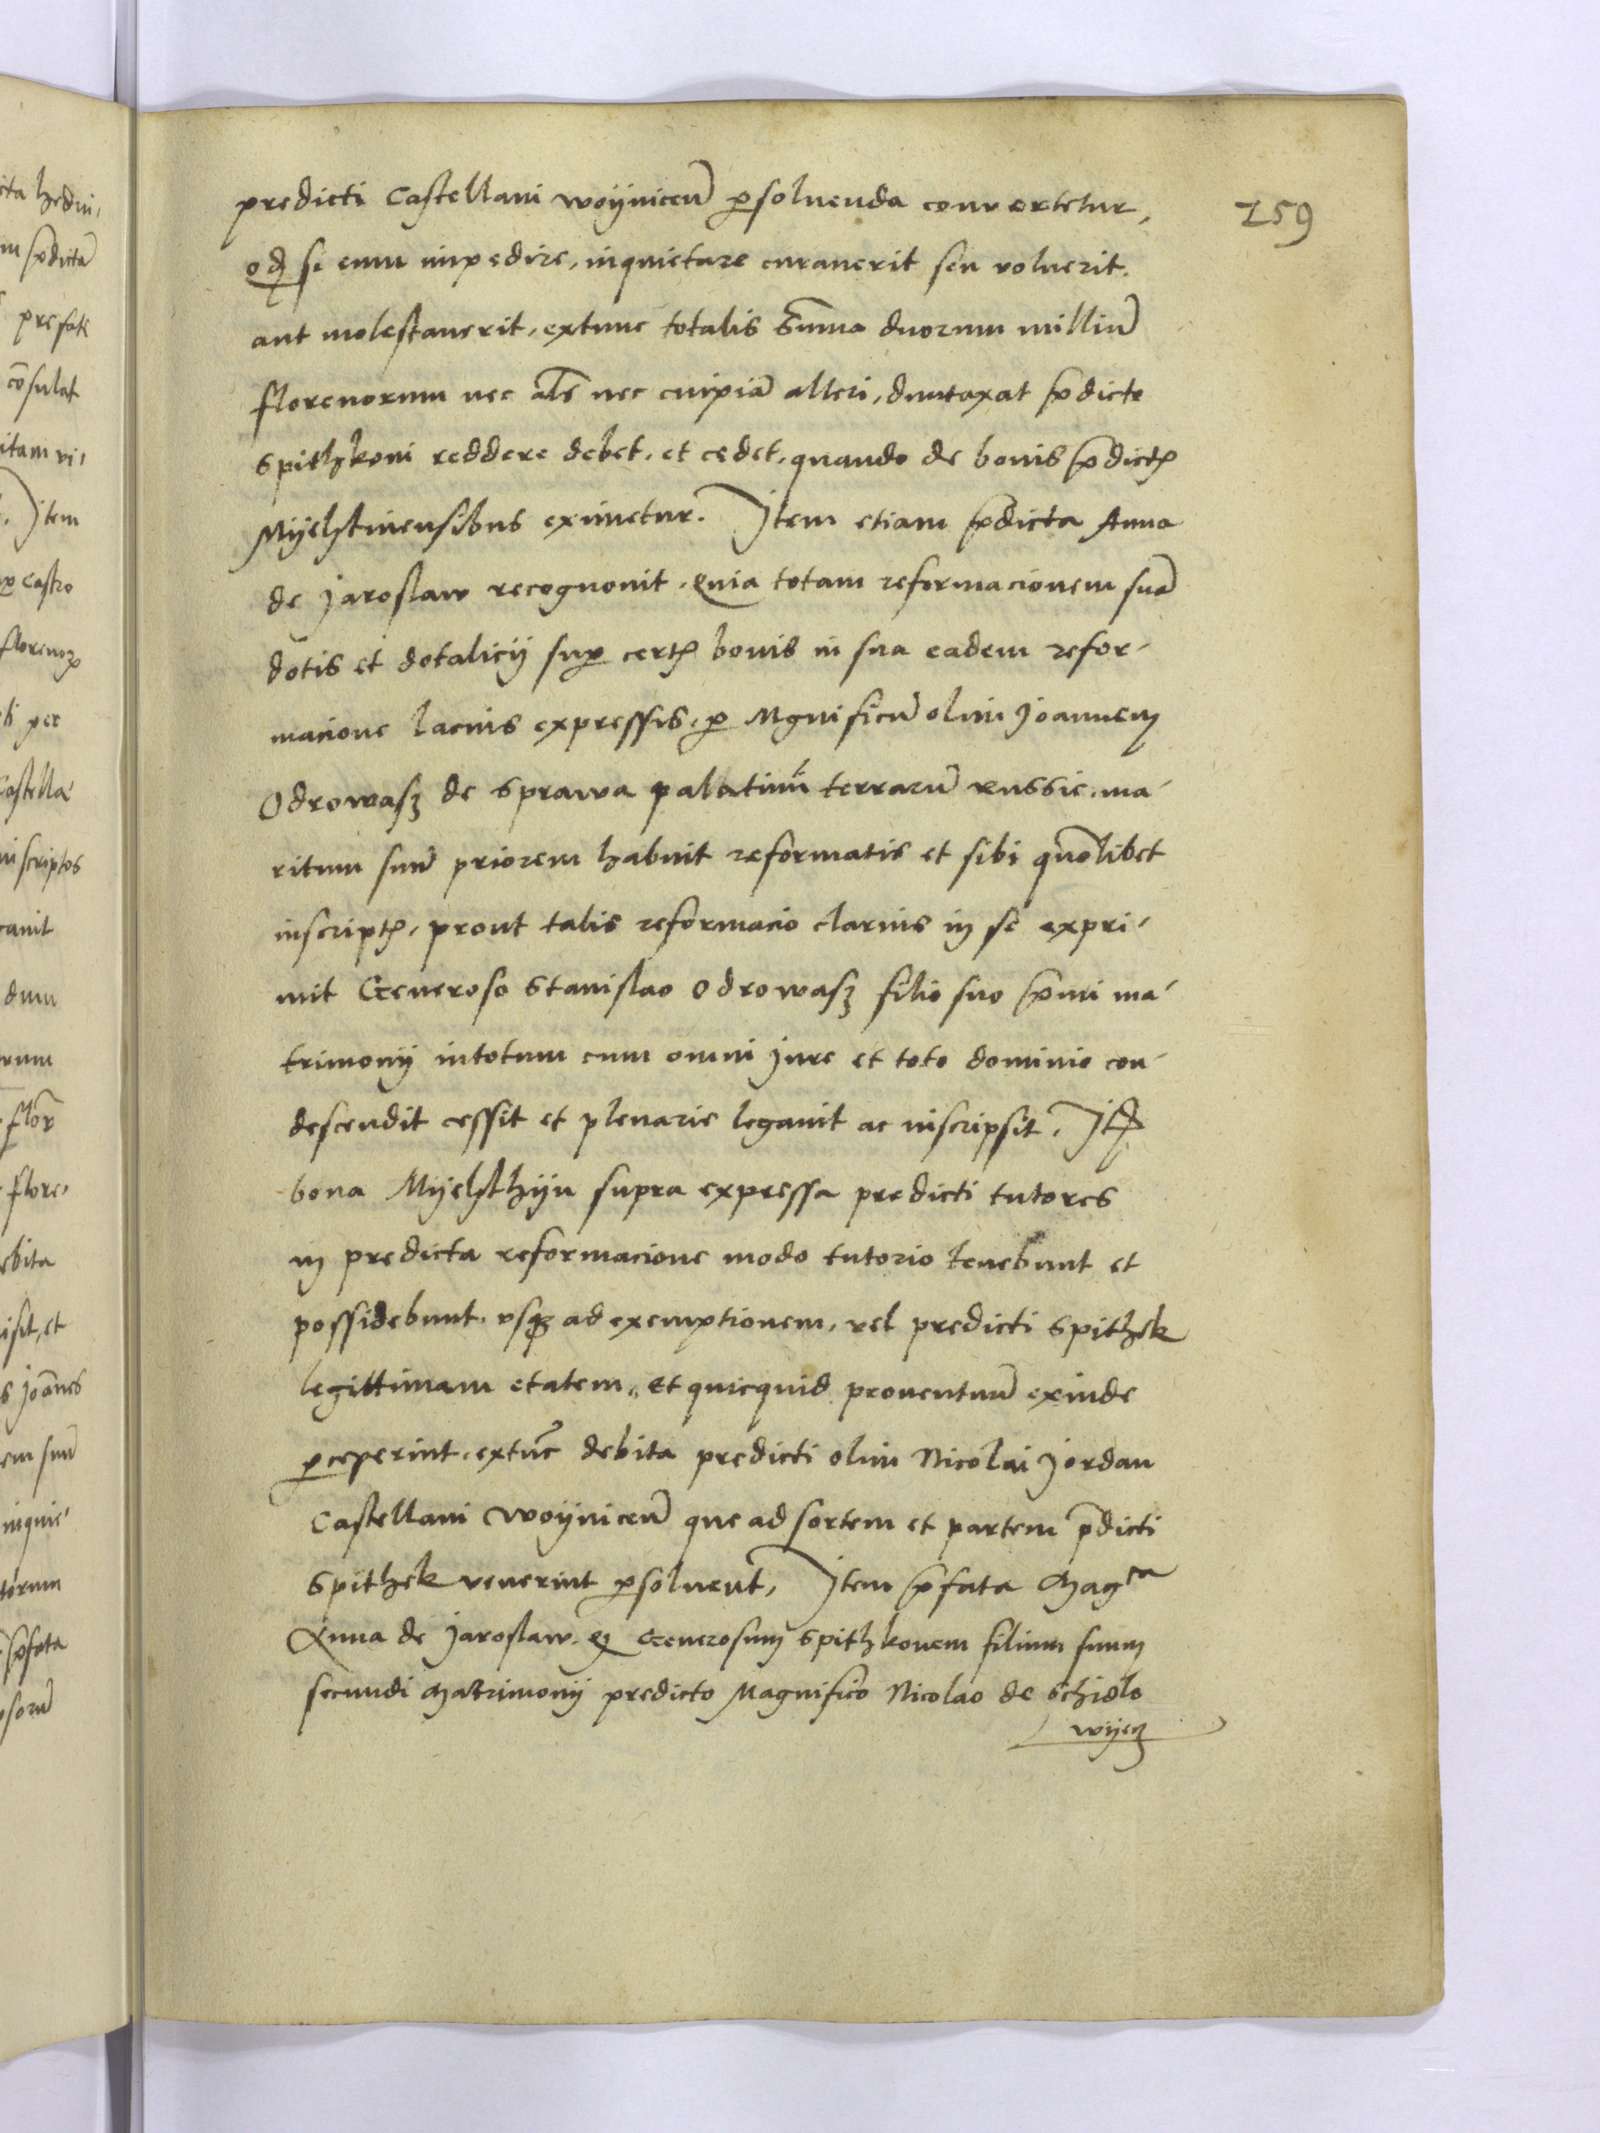 259
predicti Castellani Woyniceñ ꝑsoluenda conuertetur,
ꝙ si eum impedire, inquietare curauerit seu voluerit.
aut molestauerit, extunc totalis Sum̃a duorum milliũ
florenorum nec al̃s nec cuipiã alteri, duntaxat p̃dicto
Spithkoni reddere debet. et cedet, quando de bonis p̃dictꝭ
Myelstinensibus eximetur. Item etiam p̃dicta Anna
de Jaroslaw recognouit. Quia totam reformacionem suã
dotis et dotalicij suꝑ certꝭ bonis in sua eadem refor-
macione lacius expressis. ꝑ Mgnificũ olim Joannem
Odrowasz de Sprawa palatinũ terrarũ Russie. ma-
ritum suũ priorem habuit reformatis et sibi quõlibet
inscriptꝭ, prout talis reformacio clarius in se expri-
mit Generoso Stanislao Odrowasz filio suo p̃mi ma-
trimonij intotum cum omni Jure et toto dominio con-
descendit cessit et plenarie legauit ac inscripsit. Itꝗ
bona Myelsthyn supra expressa predicti tutores
in predicta reformacione modo tutorio tenebunt et
possidebunt. vsqꝫ ad exemptionem, vel predicti Spithek
legittimam etatem, Et quicquid prouentuũ exinde
ꝑceperint. extũc debita predicti olim Nicolai Jordan
Castellani Woyniceñ que ad sortem et partem p̃dicti
Spithek venerint ꝑsoluent, Item p̃fata Magᶜᵃ
Anna de Jaroslaw. Generosum Spithkonem filium suum
secundi Matrimonij predicto Magnifico Nicolao de Schidlo
wyecz